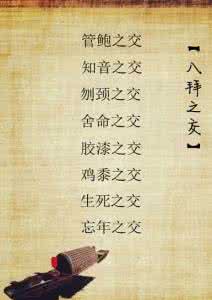 【八拜之交】
管鲍之交
知音之交
刎颈之交
舍命之交
胶漆之交
鸡黍之交
生死之交
忘年之交